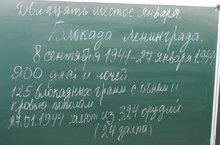 Двадцать шестое января.
Блокада Ленинграда.
8 сентября 1941-27 января 1944
900 дней и ночей
125 блокадных грамм с огнём и
кровью пополам
27.01.1944 салют из 324 орудий
(24 залпа)